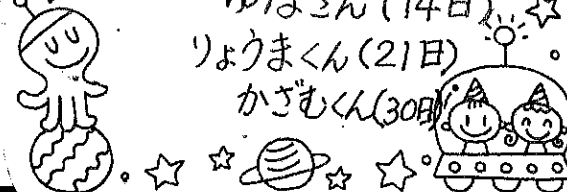 ゆなさん(14日)
りょうまくん(21日)
かざむくん(30日)